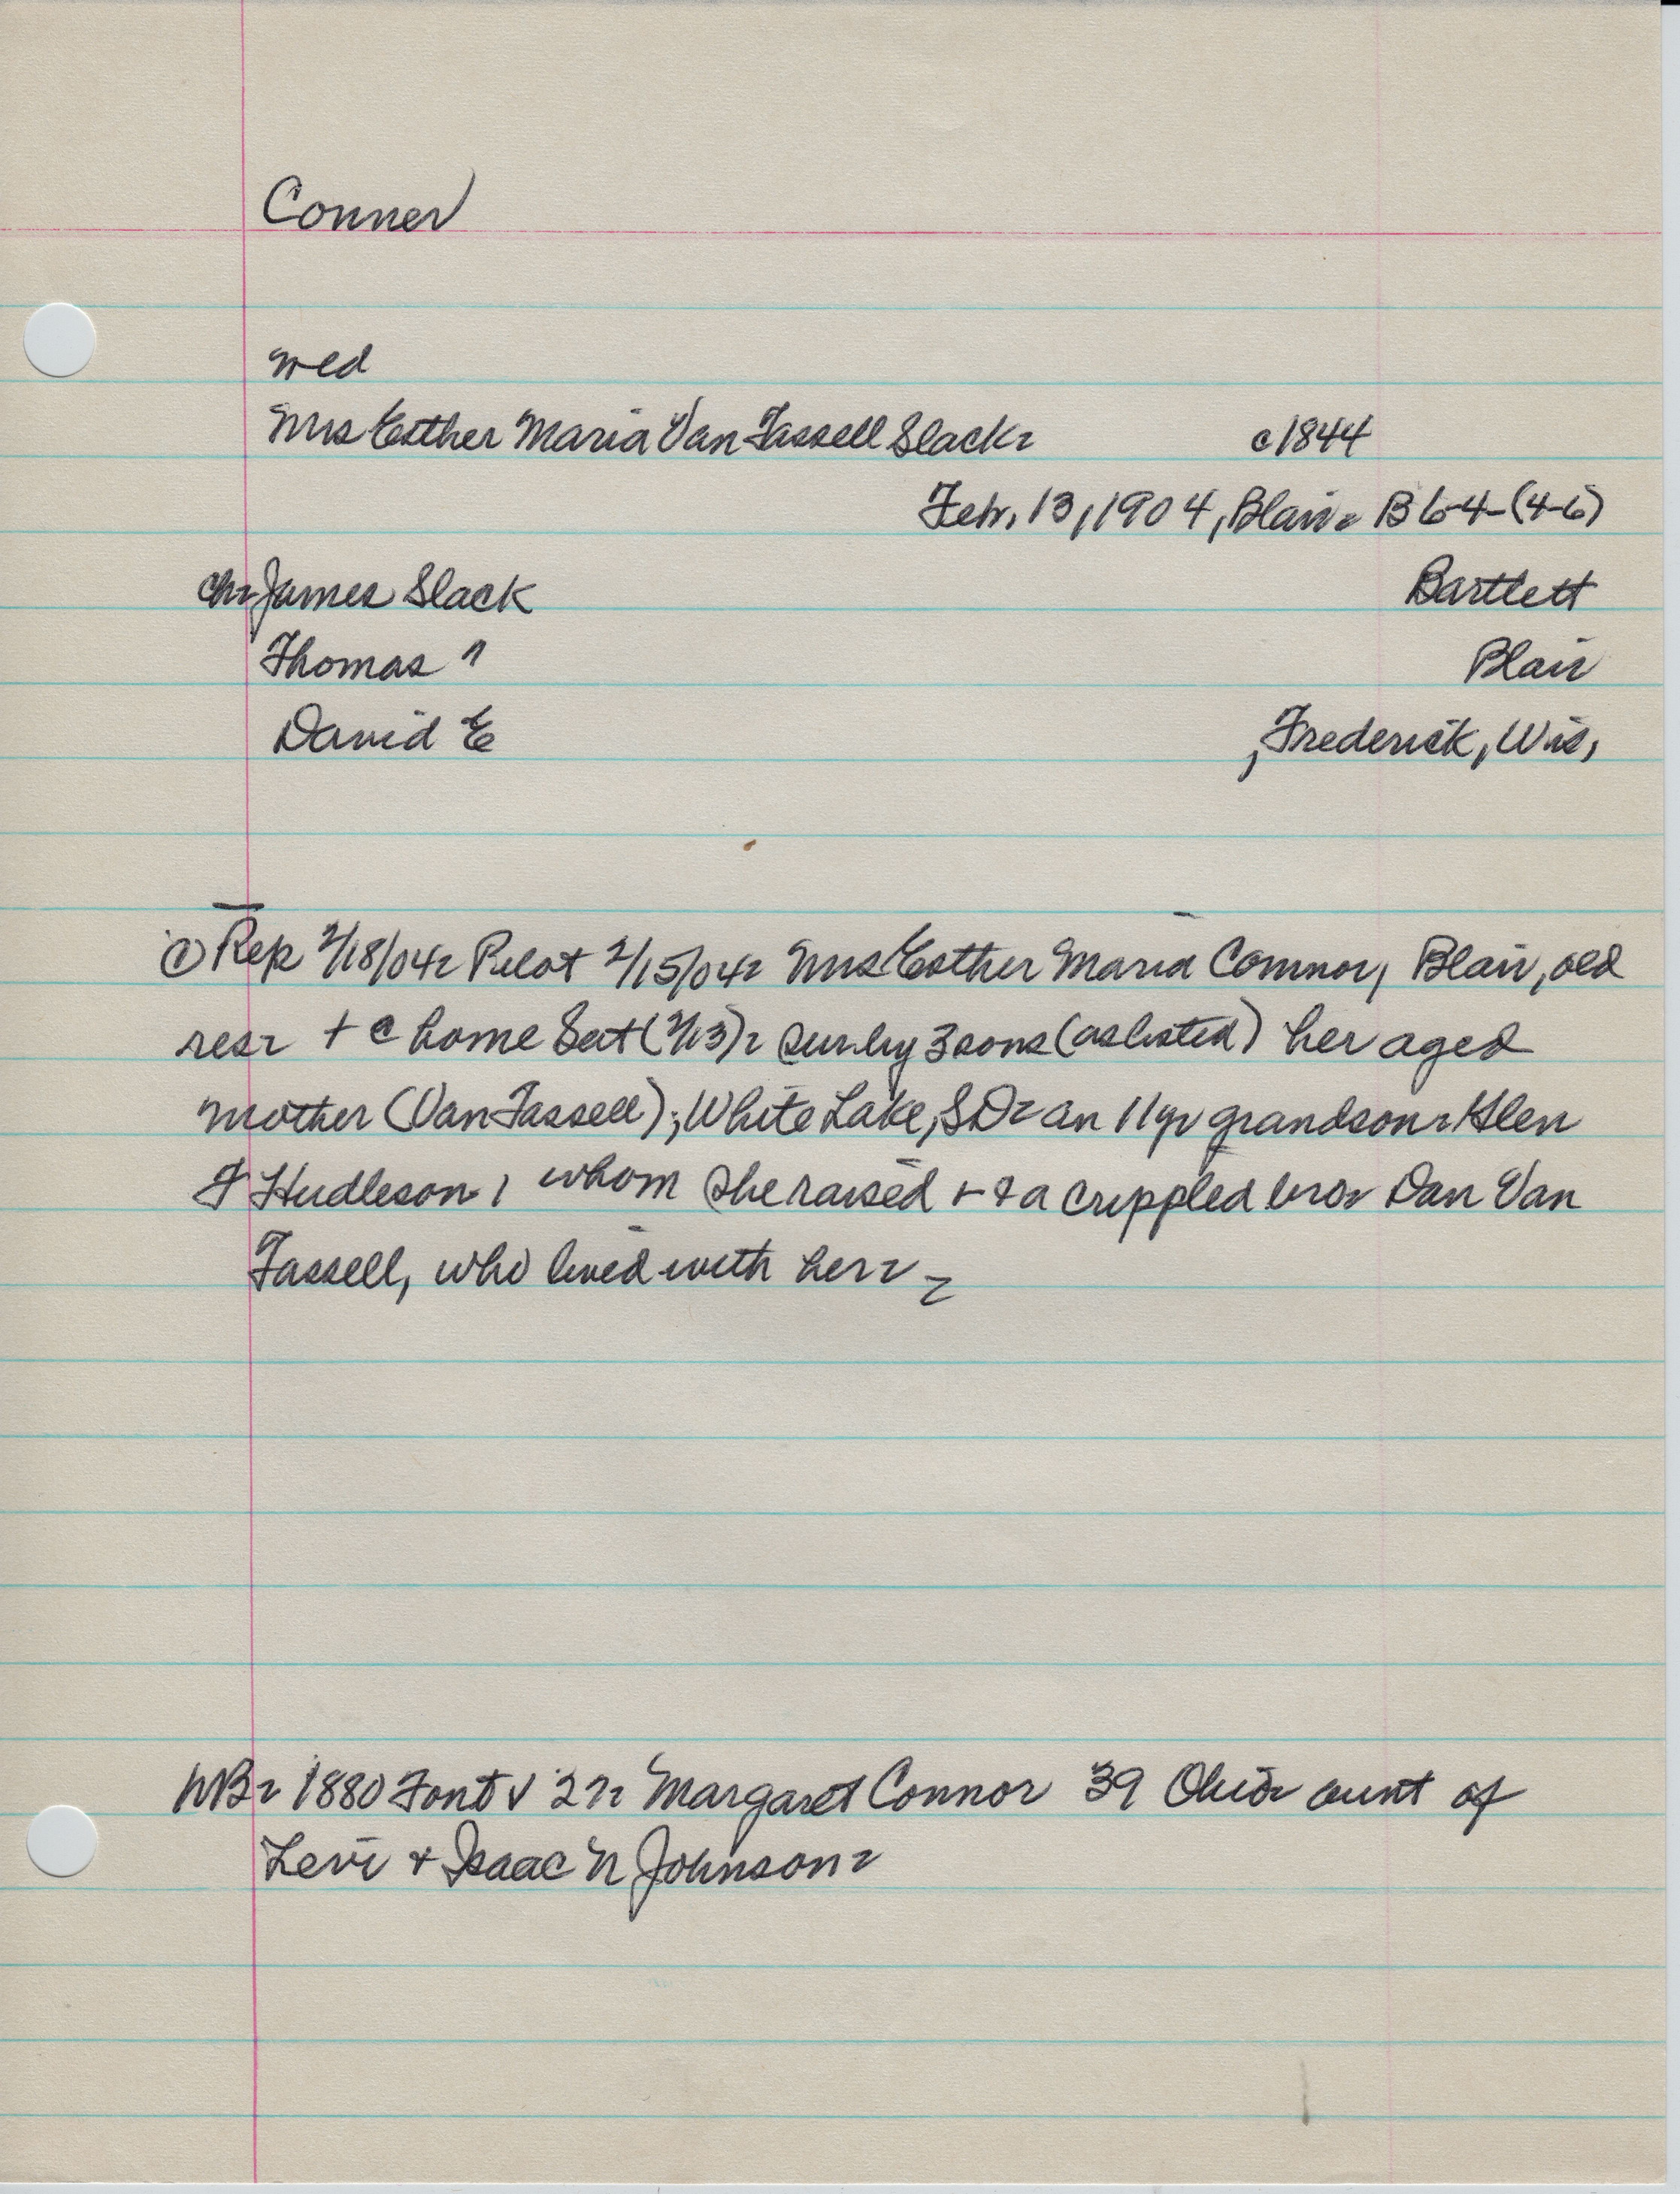 Conner
wed
Mrs Esther Maria Van Tassell Slack c1844
Feb. 13, 1904, Blair B 6-4-(4-6)
Ch James Slack Bartlett
Thomas " Blair
David E , Frederick, Wis,
① Rep 2/18/04 Pilot 2/15/04 Mrs Esther Maria Connor, Blair, old
res + @ home Sat (2/13) sur by 3 sons (as listed) her aged
mother (Van Tassell); White Lake, SD an 11 yr grandson Glen
F Hudleson, whom she raised + a crippled bro Dan Van
Tassell, who lived with her
NB 1880 Font V 27 Margaret Connor 39 Ohio aunt of
Levi + Isaac N Johnson